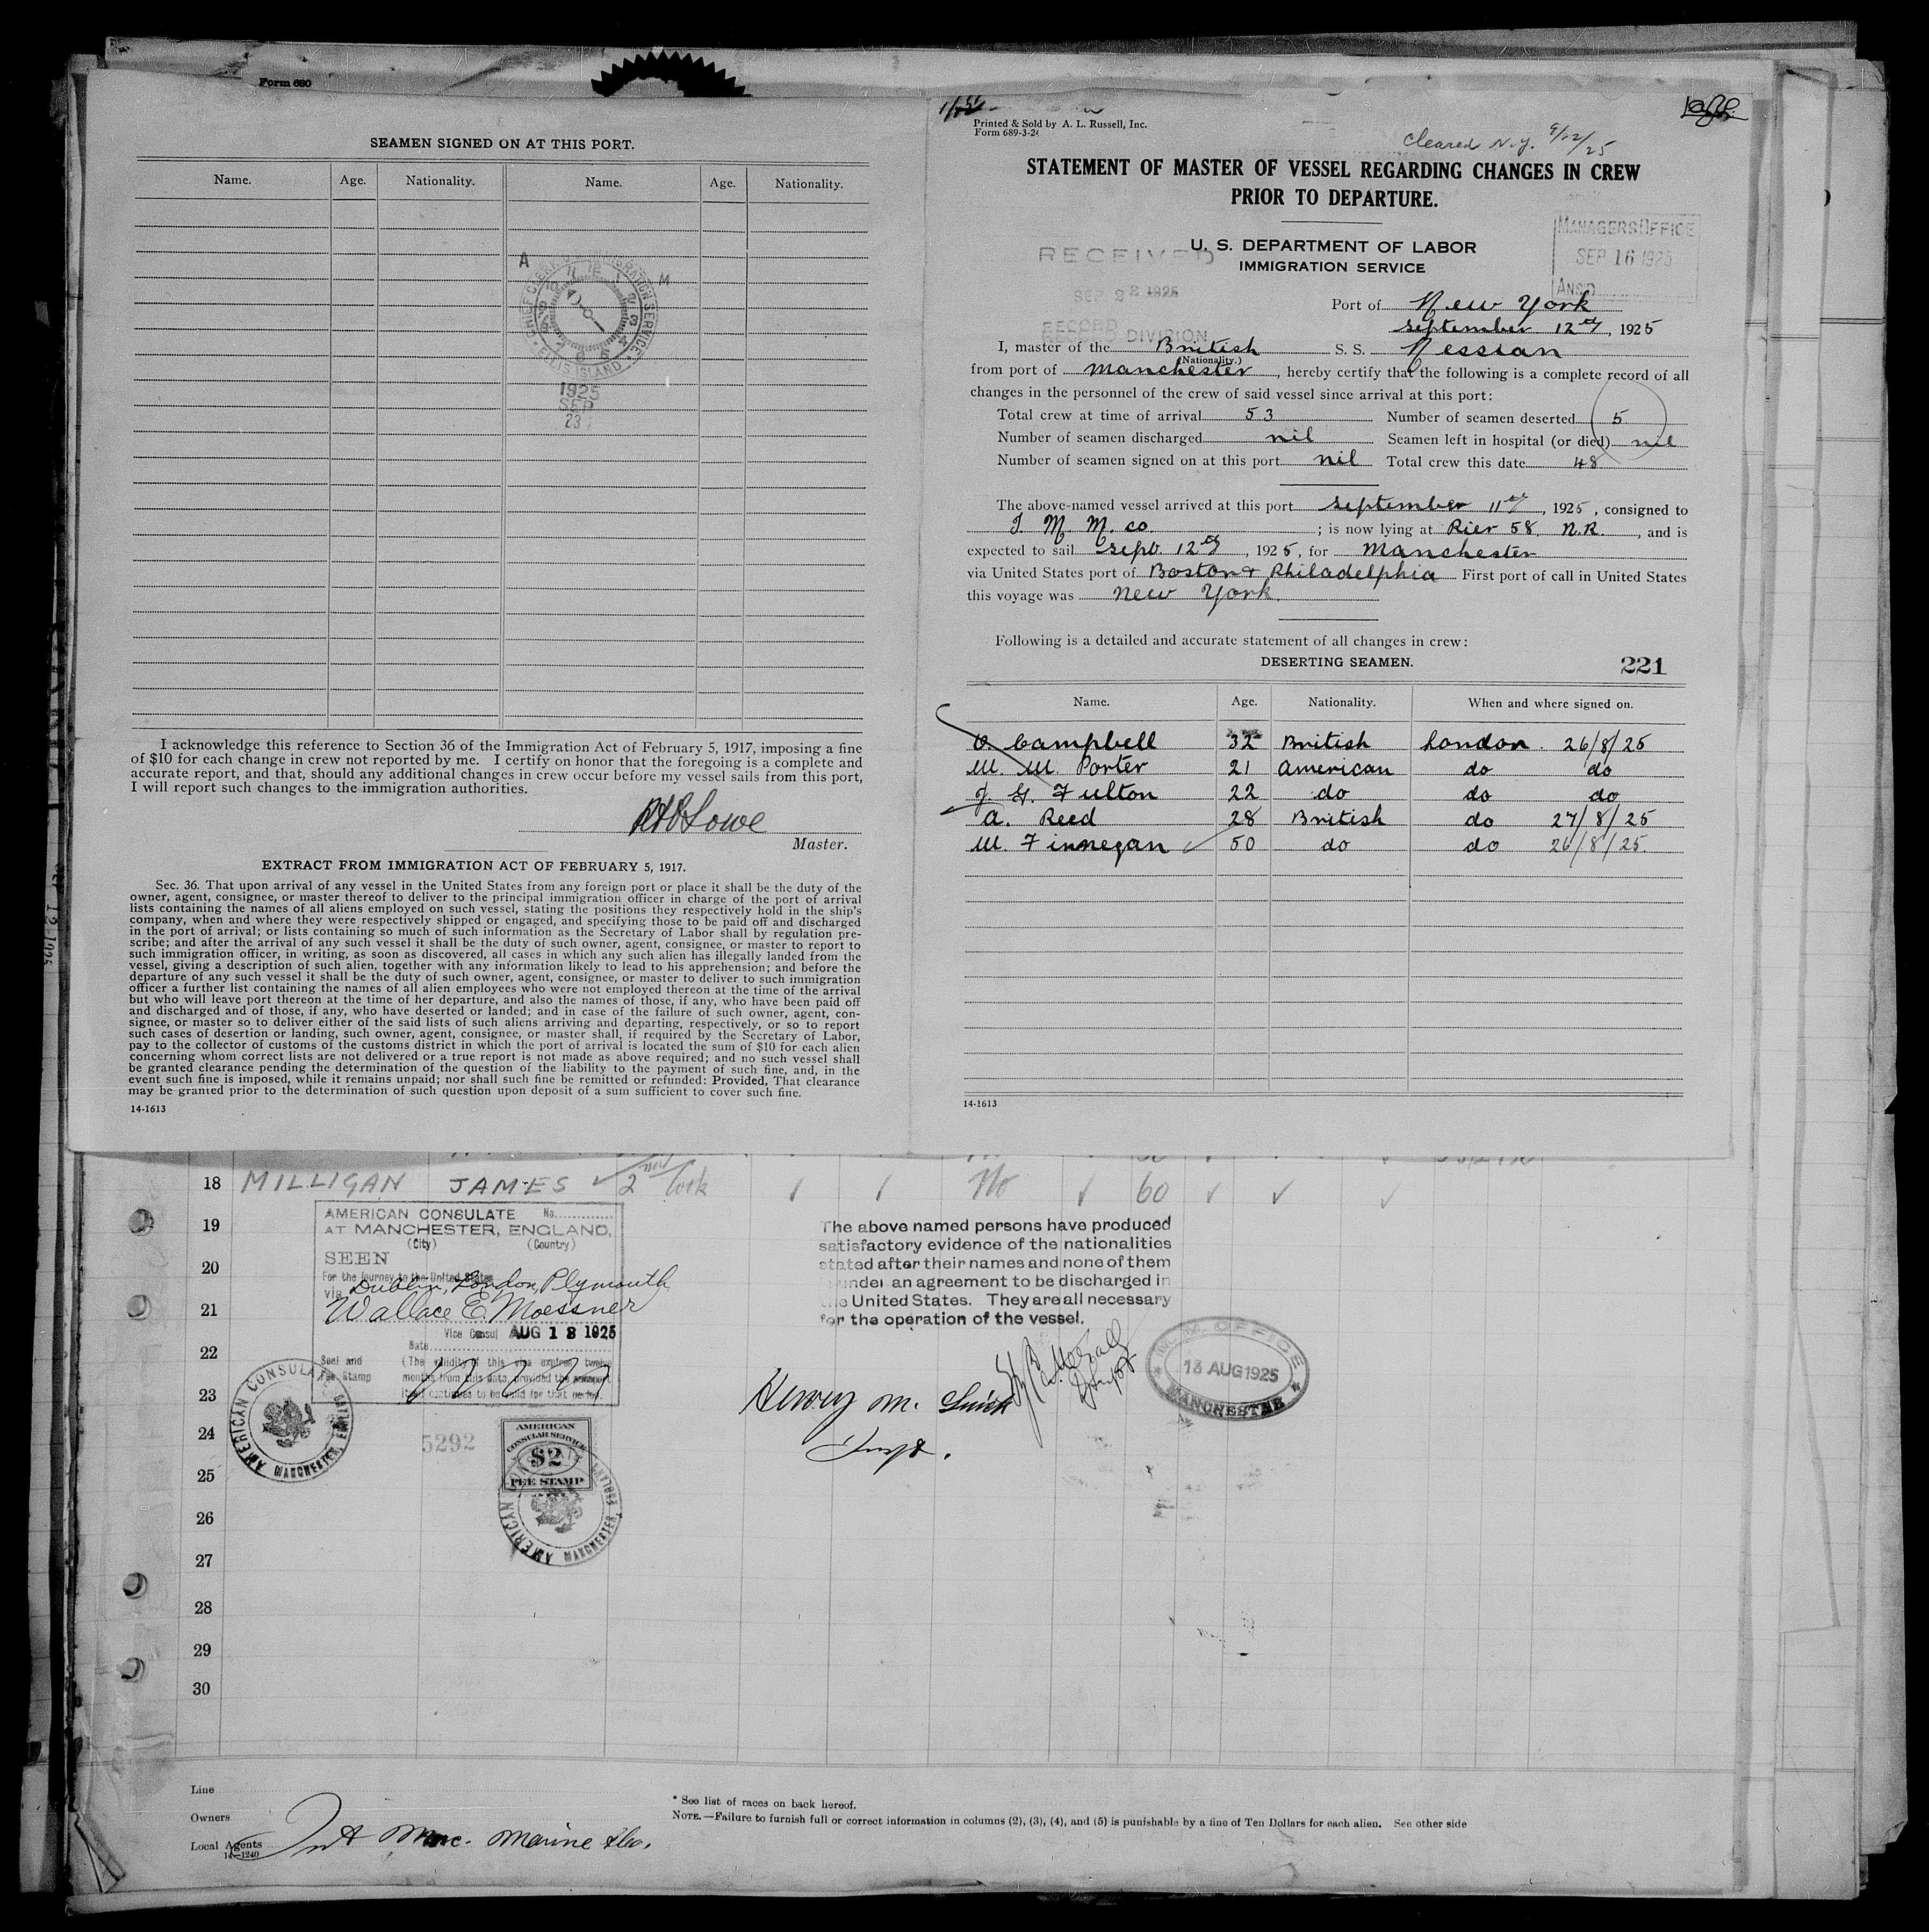 Form 680
SEAMEN SIGNED ON AT THIS PORT.
Name. Age. Nationality. Name. Age. Nationality.
A M
CHIEF CLERK IMMIGRATION SERVICE
ELLIS ISLAND
1925
SEP
23
I acknowledge this reference to Section 36 of the Immigration Act of February 5, 1917, imposing a fine
of $10 for each change in crew not reported by me. I certify on honor that the foregoing is a complete and
accurate report, and that, should any additional changes in crew occur before my vessel sails from this port,
I will report such changes to the immigration authorities.
Lowe
Master.
EXTRACT FROM IMMIGRATION ACT OF FEBRUARY 5, 1917.
Sec. 36. That upon arrival of any vessel in the United States from any foreign port or place it shall be the duty of the
owner, agent, consignee, or master thereof to deliver to the principal immigration officer in charge of the port of arrival
lists containing the names of all aliens employed on such vessel, stating the positions they respectively hold in the ship's
company, when and where they were respectively shipped or engaged, and specifying those to be paid off and discharged
in the port of arrival; or lists containing so much of such information as the Secretary of Labor shall by regulation pre-
scribe; and after the arrival of any such vessel it shall be the duty of such owner, agent, consignee, or master to report to
such immigration officer, in writing, as soon as discovered, all cases in which any such alien has illegally landed from the
vessel, giving a description of such alien, together with any information likely to lead to his apprehension; and before the
departure of any such vessel it shall be the duty of such owner, agent, consignee, or master to deliver to such immigration
officer a further list containing the names of all alien employees who were not employed thereon at the time of the arrival
but who will leave port thereon at the time of her departure, and also the names of those, if any, who have been paid off
and discharged and of those, if any, who have deserted or landed; and in case of the failure of such owner, agent, con-
signee, or master so to deliver either of the said lists of such aliens arriving and departing, respectively, or so to report
such cases of desertion or landing, such owner, agent, consignee, or master shall, if required by the Secretary of Labor,
pay to the collector of customs of the customs district in which the port of arrival is located the sum of $10 for each alien
concerning whom correct lists are not delivered or a true report is not made as above required; and no such vessel shall
be granted clearance pending the determination of the question of the liability to the payment of such fine, and, in the
event such fine is imposed, while it remains unpaid; nor shall such fine be remitted or refunded: Provided, That clearance
may be granted prior to the determination of such question upon deposit of a sum sufficient to cover such fine.
14-1613
Printed & Sold by A. L. Russell, Inc.
Form 689-3-24
Cleared N.Y. 9/12/25
STATEMENT OF MASTER OF VESSEL REGARDING CHANGES IN CREW
PRIOR TO DEPARTURE.
MANAGERS OFFICE
SEP 16 1925
ANSD
U. S. DEPARTMENT OF LABOR
IMMIGRATION SERVICE
RECEIVED
SEP 22 1925
RECORD DIVISION
Port of New York
September 12th, 1925
I, master of the British S. S. Nessian
(Nationality.)
from port of Manchester, hereby certify that the following is a complete record of all
changes in the personnel of the crew of said vessel since arrival at this port:
Total crew at time of arrival 53 Number of seamen deserted 5
Number of seamen discharged nil Seamen left in hospital (or died) nil
Number of seamen signed on at this port nil Total crew this date 48
The above-named vessel arrived at this port September 11th, 1925, consigned to
I. M. M. Co ; is now lying at Pier 58. N.R., and is
expected to sail Sept. 12th, 1925, for Manchester
via United States port of Boston & Philadelphia First port of call in United States
this voyage was New York.
Following is a detailed and accurate statement of all changes in crew:
DESERTING SEAMEN. 221
Name. Age. Nationality. When and where signed on.
O. Campbell 32 British London. 26/8/25
W. W. Porter 21 American do do
J. G. Fulton 22 do do do
A. Reed 28 British do 27/8/25
W. Finnegan 50 do do 26/8/25.
14-1613
18 MILLIGAN JAMES 2nd Cook No 60
19
20
21
22
23
24
25
26
27
28
29
30
AMERICAN CONSULATE No.
AT MANCHESTER, ENGLAND,
(City) (Country)
SEEN
For the journey to the United States
via Dublin, London, Plymouth
Wallace E. Moessner
Vice Consul AUG 18 1925
Date
Seal and
Fee Stamp
(The validity of this visa expires twelve
months from this date, provided the passport
continues to be valid for that period.
AMERICAN CONSULATE
MANCHESTER, ENGLAND
5292
AMERICAN
CONSULAR SERVICE
$2
FEE STAMP
AMERICAN CONSULATE
MANCHESTER, ENGLAND
The above named persons have produced
satisfactory evidence of the nationalities
stated after their names and none of them
under an agreement to be discharged in
the United States. They are all necessary
for the operation of the vessel.
M. M. OFFICE
13 AUG 1925
MANCHESTER
Henry M. Smith
Supt.
Line
Owners
Local Agents Int Merc. Marine & Co.
14-1240
* See list of races on back hereof.
NOTE.—Failure to furnish full or correct information in columns (2), (3), (4), and (5) is punishable by a fine of Ten Dollars for each alien. See other side